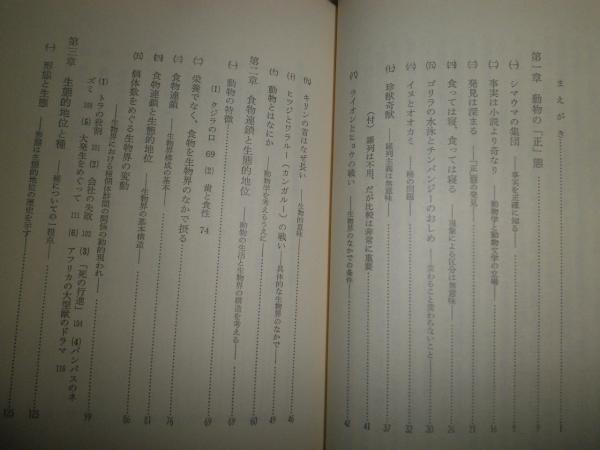 まえがき
第一章 動物の「正」態
㈠ シマウマの集団 ――事実を正確に知る――
㈡ 事実は小説より奇なり ――動物学と動物文学の立場―― 16
㈢ 発見は深まる ――『正』態の発見―― 21
㈣ 食っては寝、食っては寝る ――現象による区分は無意味―― 26
㈤ ゴリラの水泳とチンパンジーのおしめ ――変わること変わらないこと―― 30
㈥ イヌとオオカミ ――種の問題―― 32
㈦ 珍獣奇獣 ――羅列主義は無意味―― 37
(付) 羅列は不用、だが比較は非常に重要 41
㈧ ライオンとヒョウの戦い ――生物界のなかでの条件―― 42
㈨ キリンの首はなぜ長い ――生物的意味―― 46
㈩ ヒツジとワラルー(カンガルー)の戦い ――具体的な生物界のなかで―― 48
動物とはなにか ――動物学を考えるうえに―― 49
第二章 食物連鎖と生態的地位 ――動物の生活と生物界の構造を考える―― 60
㈠ 動物の特徴 69
(1) クジラの口 69 (2) 歯と食性 74
㈡ 栄養でなく、食物を生物界のなかで摂る 69
㈢ 食物連鎖 ――生物界構成の基本―― 76
㈣ 食物連鎖と生態的地位 ――生物界の基本構造―― 81
㈤ 個体数をめぐる生物界の変動 86
――生物界における種個体群間の関係の動的現われ―― 99
(1) トラの役割 101 (2) 会社の失敗 102 (3) 「死の行進」 104 (4) パンパスのネ
ズミ 108 (5) 大発生をめぐって 111 (6) アフリカの大型獣のドラマ 116
第三章 生態的地位と種 ――種についての一視点―― 125
㈠ 形態と生態 ――形態は生態的地位の歴史を示す―― 125